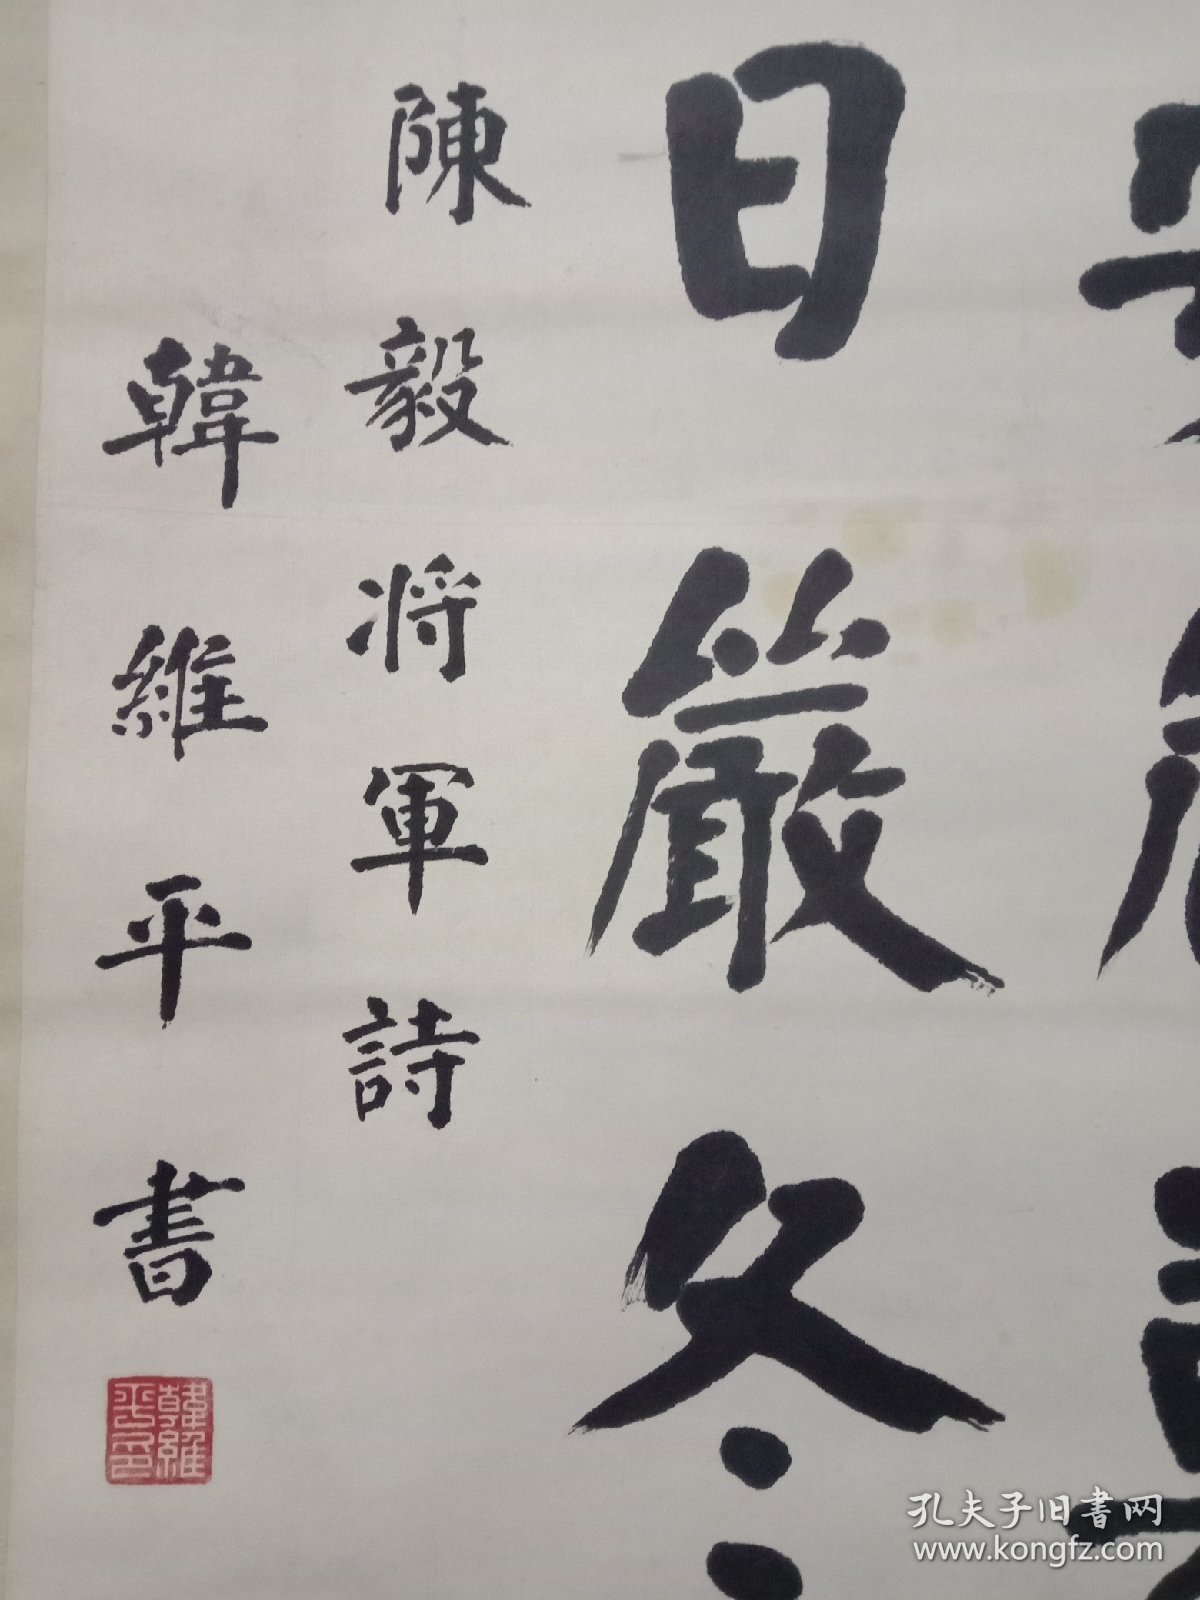 日嚴冬
陳毅将軍詩
韓維平書
韓維平印
孔夫子旧書网
www.kongfz.com